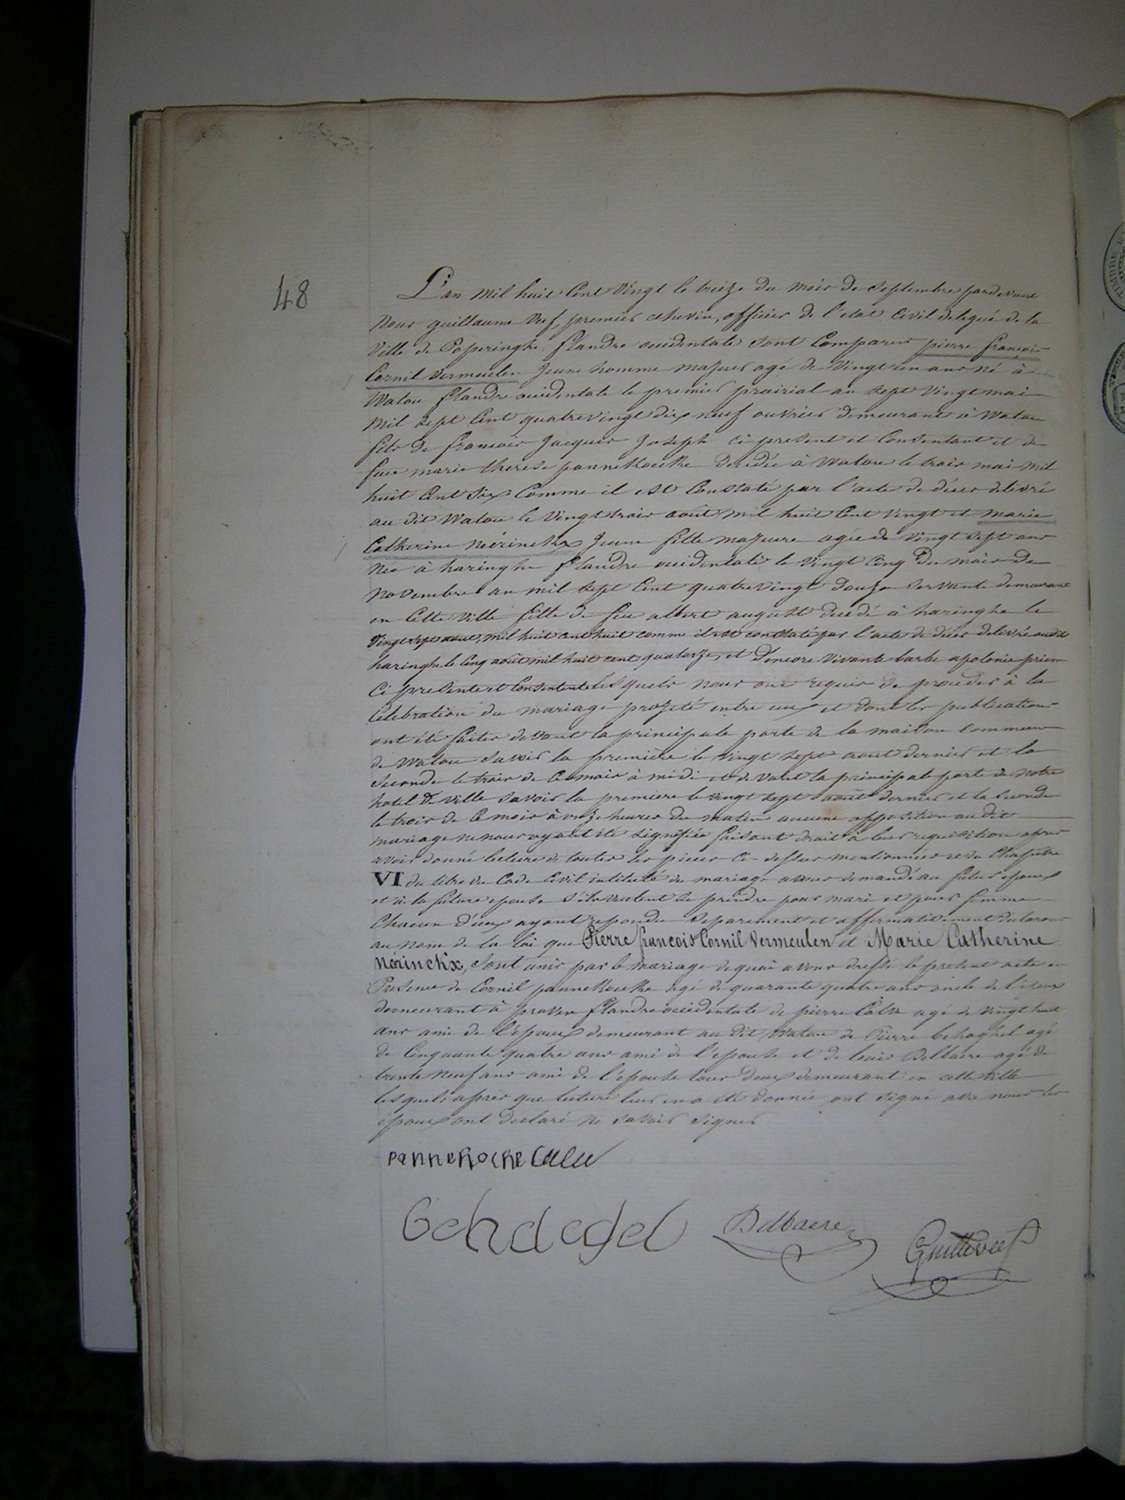 48
L'an mil huit cent vingt le treize du mois de Septembre pardevant
nous guillaume Veef, premier echevin, officier de l'etat civil delegué de la
Ville de Poperinghe, flandre occidentale sont comparus pierre françois
Cornil Vermeulen jeune homme majeur agé de vingt un ans né à
Watou flandre occidentale le premier prairial an sept vingt mai
mil sept cent quatrevingt dix neuf ouvrier demeurant à Watou
fils de francois Jacques Joseph ci present et consentant et de
feue marie therese pannekoecke decedée à Watou le trois mai mil
huit cent six comme il est constaté par l'acte de décès delivré
au dit Watou le vingt trois août mil huit cent vingt et marie
Catherine Neirinckx jeune fille majeure agée de vingt sept ans
née à haringhe flandre occidentale le vingt cinq du mois de
novembre an mil sept cent quatrevingt douze servante demeurant
en cette ville fille de feu albert august decedé à haringhe le
vingt sept mil huit cent huit comme il est constaté par l'acte de décès delivré audit
haringhe le cinq août mil huit cent quatorze, et d'encore vivante barbe apolonie priem
ci presente et consentante lesquels nous ont requis de proceder à la
celebration du mariage projeté entre eux et dont les publications
ont été faites devant la principale porte de la maison commune
de Watou savoir la première le vingt sept aout dernier et la
seconde le trois de ce mois à midi et devant la principale porte de notre
hotel de ville savoir la premiere le vingt sept août dernier et la seconde
le trois de ce mois à onze heures du matin aucune opposition au dit
mariage ne nous ayant été signifiée faisant droit à leur requisition après
avoir donné lecture de toutes les pièces ci-dessus mentionnées et du chapitre
VI du titre du Code Civil intitulé du mariage avons demandé au futur epoux
et à la future epouse s'ils veulent se prendre pour mari et pour femme
chacun d'eux ayant repondu separement et affirmativement declarons
au nom de la loi que Pierre françois Cornil Vermeulen et Marie Catherine
Neirinckx, sont unis par le mariage de quoi avons dressé le present acte en
Presence de Cornil pannekoecke agé de quarante quatre ans oncle de l'époux
demeurant à proven flandre occidentale de pierre agé de vingt huit
ans ami de l'epoux demeurant au dit Watou de Pierre behaghel agé
de cinquante quatre ans ami de l'epouse et de louis Delbaere agé de
trente neuf ans ami de l'epouse tous deux demeurant en cette ville
lesquels après que lecture leur en a été donnée ont signé avec nous les
epoux ont declaré ne savoir signer
pannekocke
Behaegel Delbaere Guille Veef